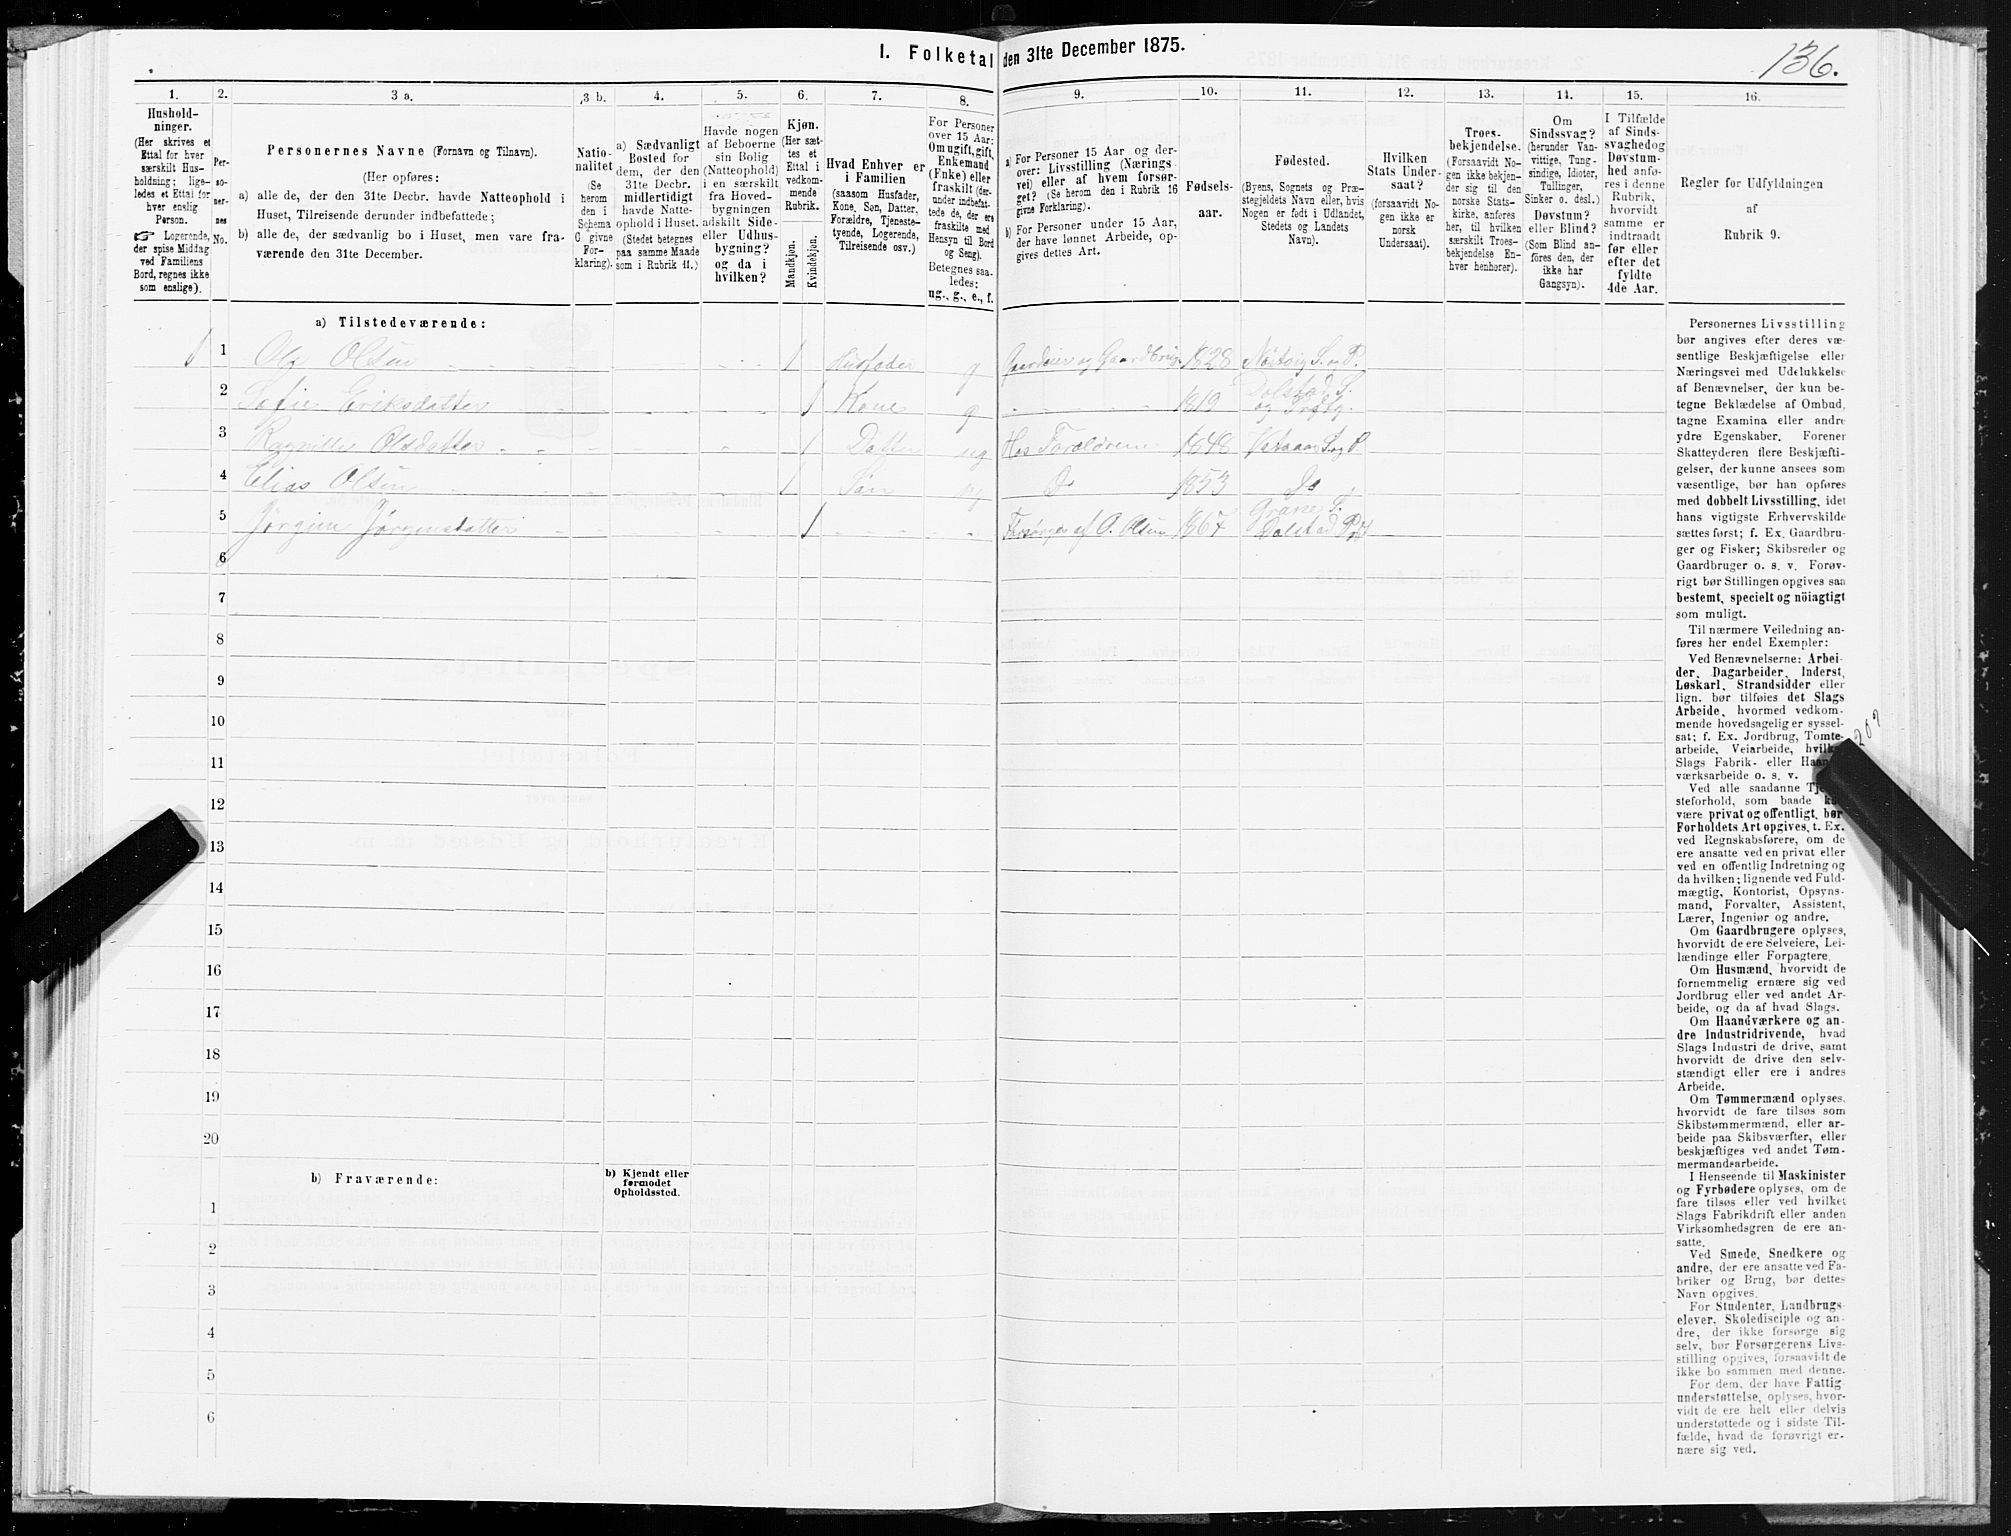 I. Folketal den 31te December 1875.
136.
1. 2. 3 a. 3 b. 4. 5. 6. 7. 8. 9. 10. 11. 12. 13. 14. 15. 16.
Hushold-
ninger.
(Her skrives et
Ettal for hver
særskilt Hus-
holdning; lige-
ledes et Ettal for
hver enslig
Person.
☞ Logerende,
der spise Middag
ved Familiens
Bord, regnes ikke
som enslige).
Per-
so-
ner-
nes
No.
Personernes Navne (Fornavn og Tilnavn).
(Her opføres:
a) alle de, der den 31te Decbr. havde Natteophold i
Huset, Tilreisende derunder indbefattede;
b) alle de, der sædvanlig bo i Huset, men vare fra-
værende den 31te December.
Natio-
nalitet
(Se
herom
den i
Schema
6 givne
For-
klaring).
a) Sædvanligt
Bosted for
dem, der den
31te Decbr.
midlertidigt
havde Natte-
ophold i Huset.
(Stedet betegnes
paa samme Maade
som i Rubrik 11.)
Havde nogen
af Beboerne
sin Bolig
(Natteophold)
i en særskilt
fra Hoved-
bygningen
adskilt Side-
eller Udhus-
bygning?
og da i
hvilken?
Kjøn.
(Her sæt-
tes et
Ettal i
vedkom-
mende
Rubrik.
Mandkjøn.
Kvindekjøn.
Hvad Enhver er
i Familien
(saasom Husfader,
Kone, Søn, Datter,
Forældre, Tjeneste-
tyende, Logerende,
Tilreisende osv.)
For Personer
over 15 Aar:
Om ugift, gift,
Enkemand
(Enke) eller
fraskilt (der-
under indbefat-
tede de, der ere
fraskilte med
Hensyn til Bord
og Seng).
Betegnes saa-
ledes:
ug., g., e., f.
a) For Personer 15 Aar og der-
over: Livsstilling (Nærings
vei) eller af hvem forsør-
get? (Se herom den i Rubrik 16
givne Forklaring).
b) For Personer under 15 Aar,
der have lønnet Arbeide, op-
gives dettes Art.
Fødsels-
aar.
Fødested.
(Byens, Sognets og Præ-
stegjeldets Navn eller, hvis
Nogen er født i Udlandet,
Stedets og Landets
Navn).
Hvilken
Stats Under-
saat?
(forsaavidt No-
gen ikke er
norsk
Undersaat).
Troes-
bekjendelse.
(Forsaavidt No-
gen ikke bekjen-
der sig til den
norske Stats-
kirke, anføres
her, til hvilken
særskilt Troes-
bekjendelse En-
hver henhører).
Om
Sindssvag?
(herunder Van-
vittige, Tung-
sindige, Idioter,
Tullinger,
Sinker o. desl.)
Døvstum?
eller Blind?
(Som Blind an-
føres den, der
ikke har
Gangsyn).
I Tilfælde
af Sinds-
svaghed og
Døvstum-
hed anfø-
res i denne
Rubrik,
hvorvidt
samme er
indtraadt
før eller
efter det
fyldte
4de Aar.
Regler for Udfyldningen
af
Rubrik 9.
a) Tilstedeværende:
1 1 Ole Olsen 1 Husfader g Gaardeier og Gaardbrug. 1828 S. og P.
2 Sofie Eriksdatter 1 Kone g 1819 Dolstad S. og
3 Olsdatter 1 Datter ug Hos Forældrene 1848 S. og P.
4 Elias Olsen 1 Søn ug Do 1853 Do
5 Jørgine Jørgensdatter 1 Forsørges af O. Olsen 1867 Grane S. Dolstad
6
7
8
9
10
11
12
13
14
15
16
17
18
19
20
b) Fraværende:
b) Kjendt eller
formodet
Opholdssted.
1
2
3
4
5
6
Personernes Livsstilling
bør angives efter deres væ-
sentlige Beskjæftigelse eller
Næringsvei med Udelukkelse
af Benævnelser, der kun be-
tegne Beklædelse af Ombud,
tagne Examina eller andre
ydre Egenskaber. Forener
Skatteyderen flere Beskjæfti-
gelser, der kunne ansees som
væsentlige, bør han opføres
med dobbelt Livsstilling, idet
hans vigtigste Erhvervskilde
sættes først; f. Ex. Gaardbru-
ger og Fisker; Skibsreder og
Gaardbruger o. s. v. Forøv-
rigt bør Stillingen opgives saa
bestemt, specielt og nöiagtigt
som muligt.
Til nærmere Veiledning an-
føres her endel Exempler:
Ved Benævnelserne: Arbei-
der, Dagarbeider, Inderst,
Løskarl, Strandsidder eller
lign. bør tilføies det Slags
Arbeide, hvormed vedkom-
mende hovedsagelig er syssel-
sat; f. Ex. Jordbrug, Tomte-
arbeide, Veiarbeide,
Slags Fabrik- eller
værksarbeide o. s. v.
Ved alle saadanne
steforhold, som baade
være privat og offentligt, bør
Forholdets Art opgives, t. Ex.
ved Regnskabsførere, om de
ere ansatte ved en privat eller
ved en offentlig Indretning og
da hvilken; lignende ved Fuld-
mægtig, Kontorist, Opsyns-
mand, Forvalter, Assistent,
Lærer, Ingeniør og andre.
Om Gaardbrugere oplyses,
hvorvidt de ere Selveiere, Lei-
lændinge eller Forpagtere.
Om Husmænd, hvorvidt de
fornemmelig ernære sig ved
Jordbrug eller ved andet Ar-
beide, og da af hvad Slags.
Om Haandværkere og an-
dre Industridrivende, hvad
Slags Industri de drive, samt
hvorvidt de drive den selv-
stændigt eller ere i andres
Arbeide.
Om Tømmermænd oplyses,
hvorvidt de fare tilsøs som
Skibstømmermænd, eller ar-
beide paa Skibsværfter, eller
beskjæftiges ved andet Tøm-
mermandsarbeide.
I Henseende til Maskinister
og Fyrbødere oplyses, om de
fare tilsøs eller ved hvilket
Slags Fabrikdrift eller anden
Virksomhedsgren de ere an-
satte.
Ved Smede, Snedkere og
andre, der ere ansatte ved Fa-
briker og Brug, bør dettes
Navn opgives.
For Studenter, Landbrugs-
elever, Skoledisciple og an-
dre, der ikke forsørge sig
selv, bør Forsørgerens Livs-
stilling opgives, forsaavidt de
ikke bo sammen med denne.
For dem, der have Fattig-
understøttelse, oplyses, hvor-
vidt de ere helt eller delvis
understøttede og i sidste Til-
fælde, hvad de forøvrigt er-
nære sig ved.